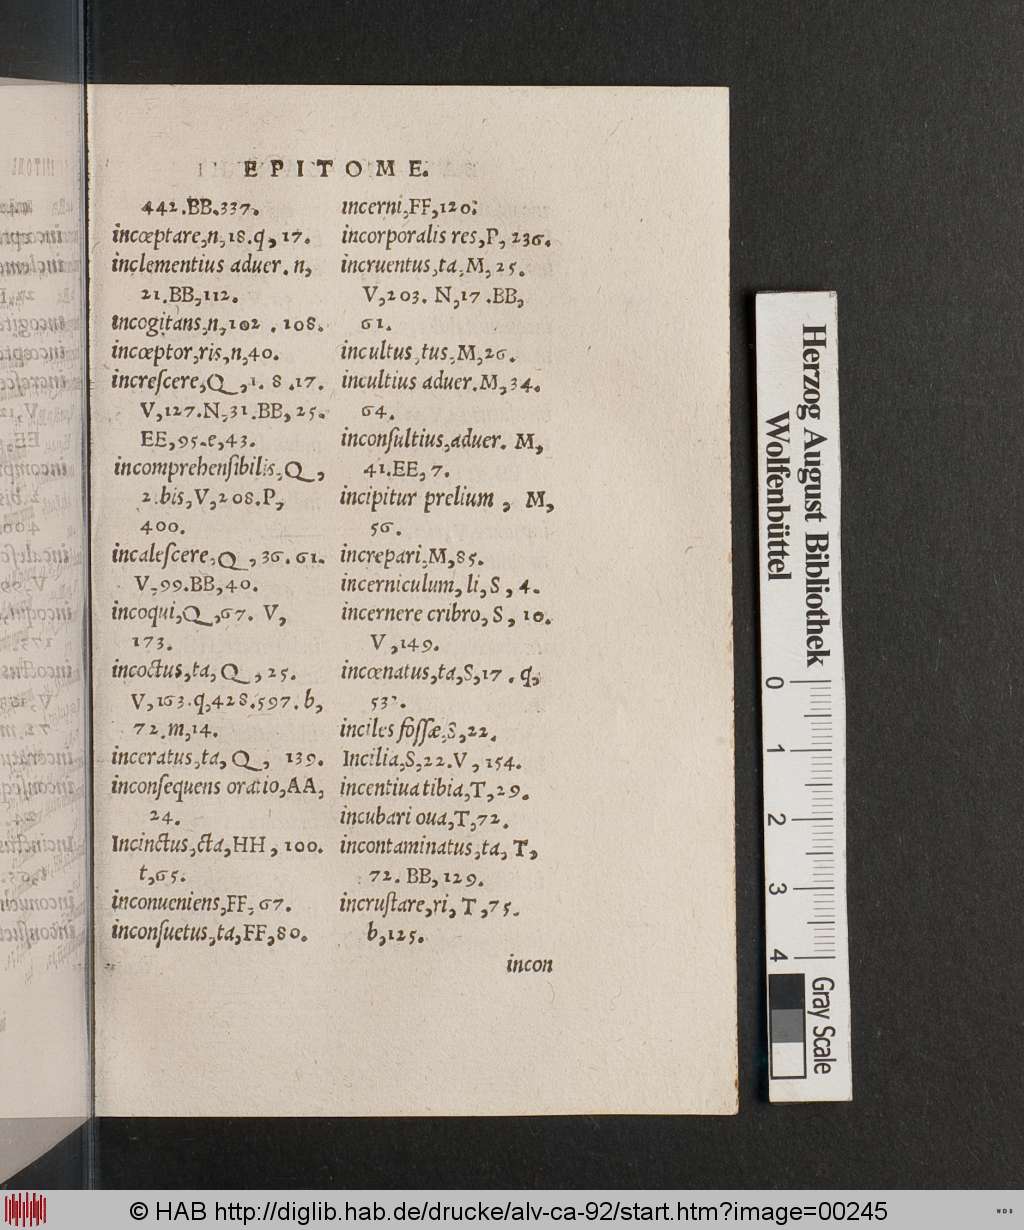 EPITOME.
442.BB.337.
incœptare,n,18.q,17.
inclementius aduer. n,
21.BB,112.
incogitans,n,102 . 108.
incœptor,ris,n,40.
increſcere,Q,1. 8 .17.
V,127.N,31.BB,25.
EE,95.e,43.
incomprehenſibilis,Q,
2.bis,V,208.P,
400.
incaleſcere,Q,36.61.
V,99.BB,40.
incoqui,Q,67. V,
173.
incoctus,ta,Q,25.
V,163.q,428.597.b,
72.m,14.
inceratus,ta,Q, 139.
inconſequens oratio,AA,
24.
Incinctus,cta,HH,100.
t,65.
inconueniens,FF,67.
inconſuetus,ta,FF,80.
incerni,FF,120.
incorporalis res,P,236.
incruentus,ta,M,25.
V,203. N,17.BB,
61.
incultus,tus,M,26.
incultius aduer.M,34.
64.
inconſultius,aduer. M,
41.EE,7.
incipitur prelium , M,
56.
increpari,M,85.
incerniculum, li,S, 4.
incernere cribro, S, 10.
V,149.
incœnatus,ta,S,17. q,
inciles foſſæ,S,22.
Incilia,S,22.V,154.
incentiua tibia,T,29.
incubari oua,T,72.
incontaminatus,ta, T,
72. BB,129.
incruſtare,ri, T,75.
b,125.
incon
Herzog August Bibliothek
Wolfenbüttel
0 1 2 3 4
Gray Scale
© HAB http://diglib.hab.de/drucke/alv-ca-92/start.htm?image=00245